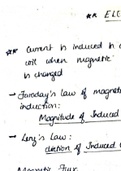 ** ELE
** Current is induced in a
coil when magnetic
is changed
→ Faraday's law of magnet
induction:
Magnitude of Induced
→ Lenz's Law:
direction of Induced
Magnetic Flux